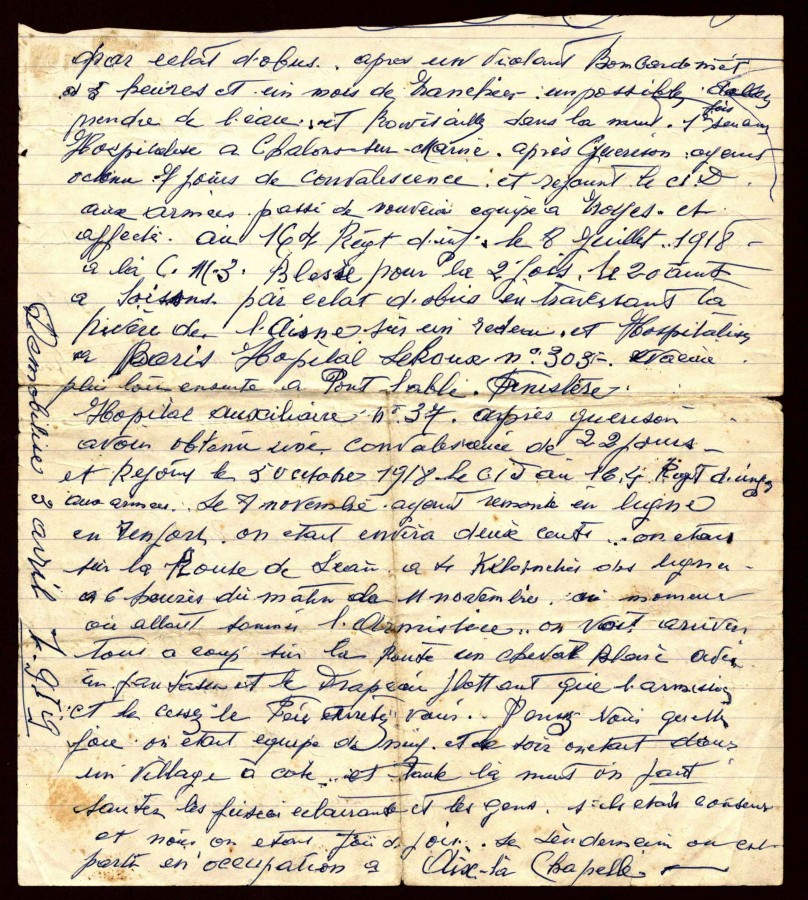 par eclat d'obus. apres un violant Bombardemét
heures et un mois de tranchées. impossible d'aller
prendre de l'eau. et Ravitaillé dans la nuit. 1er fois
Hospitalisé a Chalons-sur-Marne. après Guerison ayant
obtenu 7 jours de convalescence. et rejoint le C.I.D
aux armées. passé de nouveau equipé a Troyes. et
affecté. au 164 Régt d'inf. le 8 Juillet. 1918 -
a la C. M. 3. Blessé pour la 2e fois. le 20 aout
a Soissons. par eclat d'obus en traversant la
rivière de l'Aisne sur un radeau. et Hospitalisé
a Paris Hopital n° 303-
plus loin ensuite a Pont l'abbé. Finistère.
Hopital auxiliaire n° 37. après guerison
avoir obtenu une convalescence de 22 jours -
et Rejoins le 5 octobre 1918. le CID au 164 Regt d'inf
aux armées. Le 7 novembre. ayant remonté en ligne
en renfort. on etait environ deux cents... on etait
sur la Route de a 4 Kilometres des lignes -
a 6 heures du matin du 11 novembre. au moment
ou allait sonner l'Armistice.. on voit arriver
tous a coup sur la Route un cheval Blanc avec
un fantassin et le Drapeau flottant que l'armistice
et le cessez le Feu. Pensez vous quelle
joie on etait equipé de neuf. et le soir on etait dans
un Village à coté.. et toute la nuit on fait
sauter les fusées eclairante et les gens. s'ils etais contens
et nous on etais fou de joie. Le lendemain on est
parti en occupation a Aix-la Chapelle.
Demobilisé 3 avril 1.919